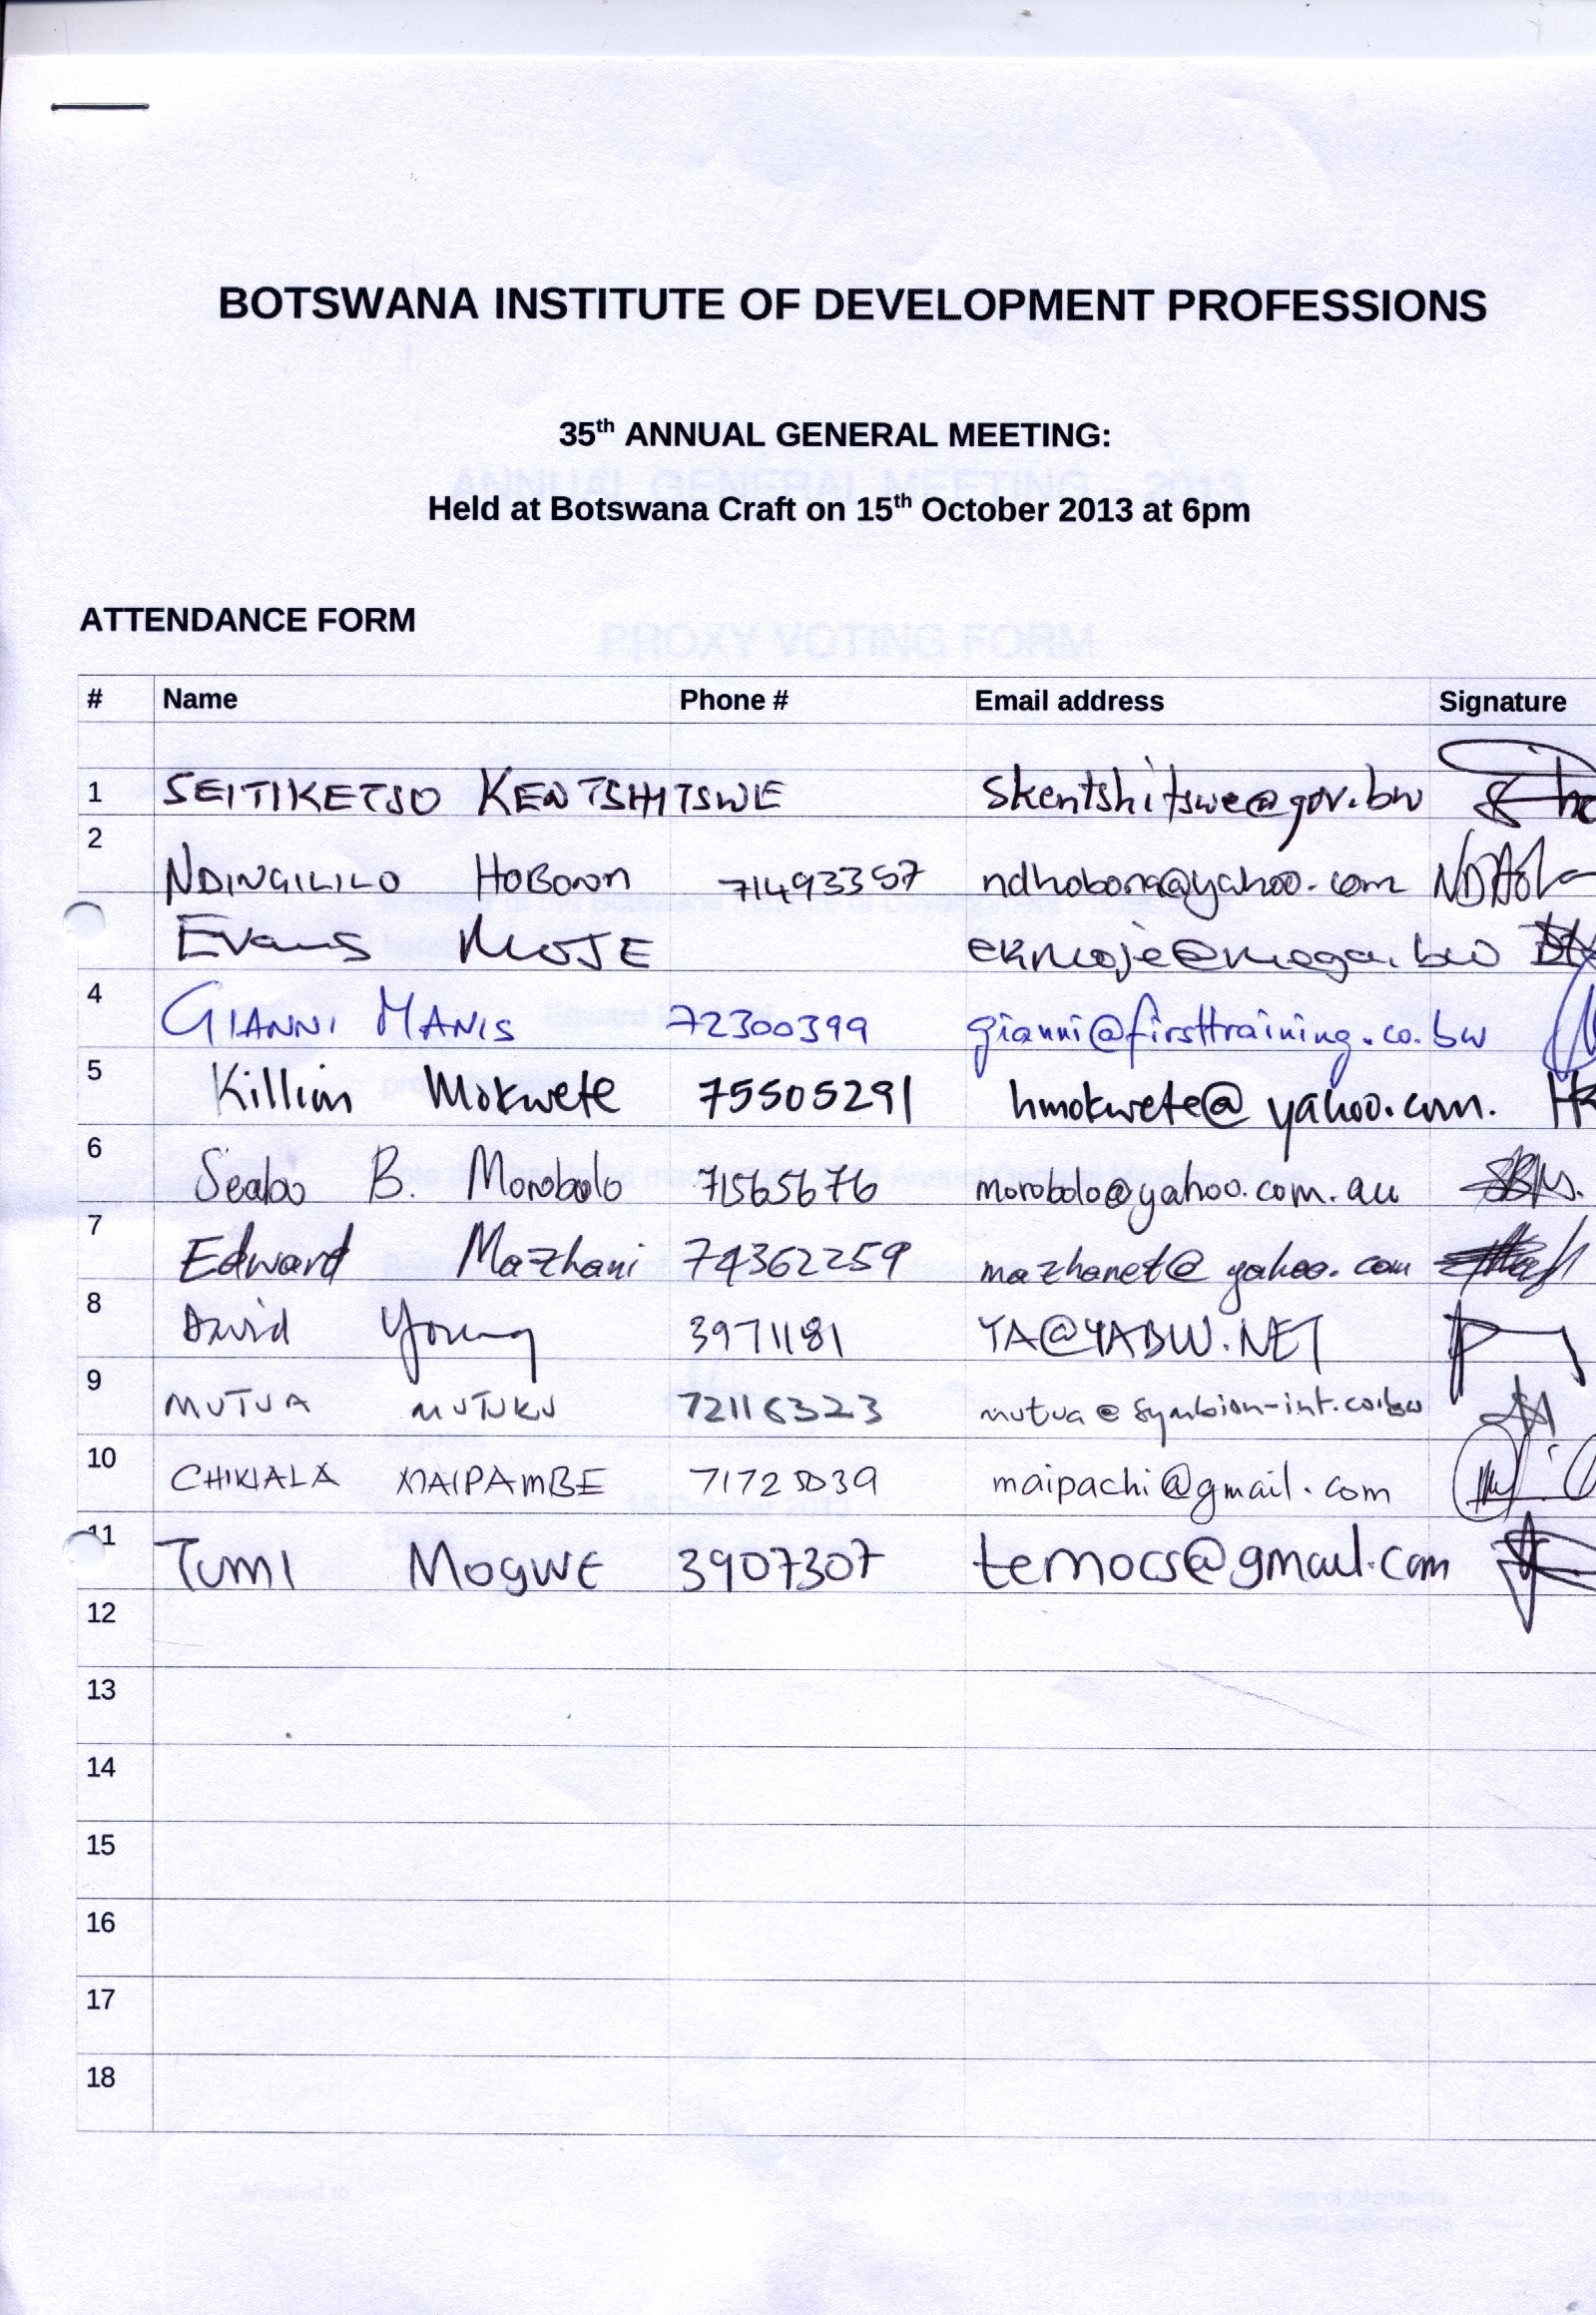 BOTSWANA INSTITUTE OF DEVELOPMENT PROFESSIONS
35th ANNUAL GENERAL MEETING:
ANNUAL GENERAL MEETING - 2013
Held at Botswana Craft on 15th October 2013 at 6pm
ATTENDANCE FORM
PROXY VOTING FORM
# Name Phone # Email address Signature
1 SEITIKETSO KENTSHITSWE skentshitswe@gov.bw
2 NDINGILILO HOBONA 71493357 ndhobona@yahoo.com
Evans MOJE ekmoje@mega.bw
4 GIANNI MANIS 72300399 gianni@firsttraining.co.bw
5 Killion Mokwete 75505291 hmokwete@yahoo.com.
6 Seabo B. Morobolo 71565676 morobolo@yahoo.com.au
7 Edward Mazhani 74362259 mazhanet@yahoo.com
8 David Young 3971181 YA@YABW.NET
9 MUTUA MUTUKU 72116323 mutua@symbion-int.co.bw
10 CHIKIALA MAIPAMBE 71725039 maipachi@gmail.com
11 TUMI MOGWE 3907307 temocs@gmail.com
12
13
14
15
16
17
18